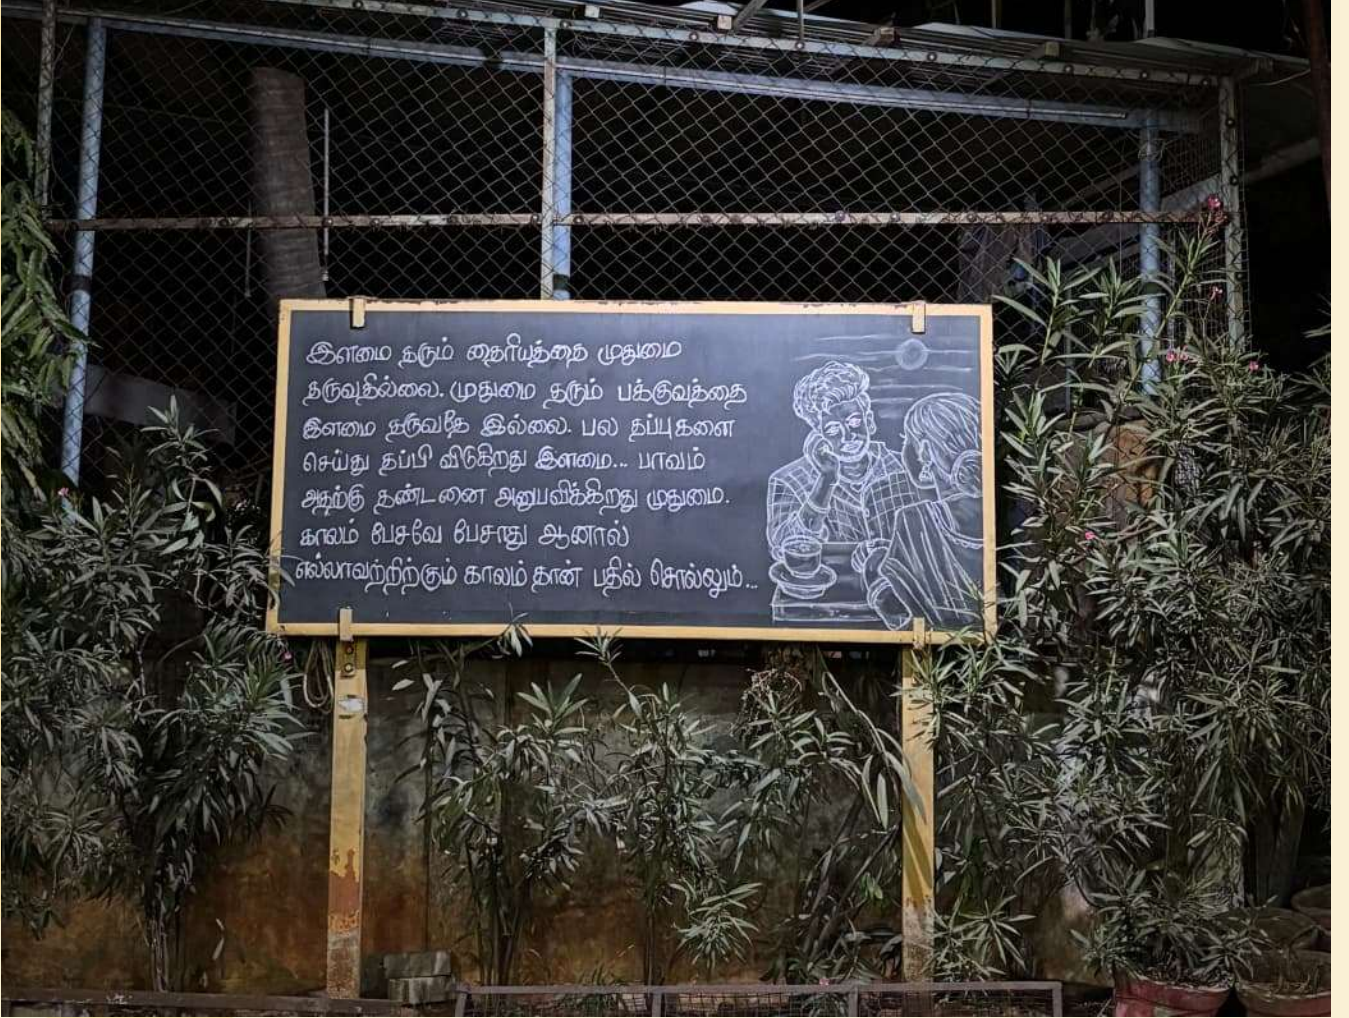 இளமை தரும் தைரியத்தை முதுமை
தருவதில்லை. முதுமை தரும் பக்குவத்தை
இளமை தருவதே இல்லை. பல தப்புகளை
செய்து தப்பி விடுகிறது இளமை... பாவம்
அதற்கு தண்டனை அனுபவிக்கிறது முதுமை.
காலம் பேசவே பேசாது ஆனால்
எல்லாவற்றிற்கும் காலம் தான் பதில் சொல்லும்...